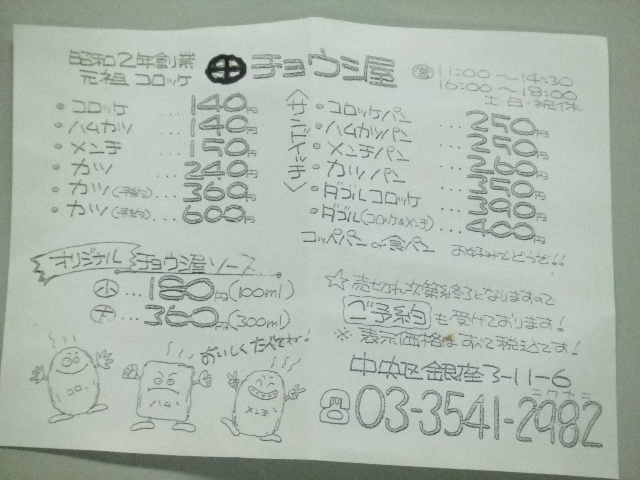 昭和2年創業
元祖 コロッケ
チョウシ屋
営 11:00～14:30
16:00～18:00
土・日・祝休
・コロッケ ... 140円
・ハムカツ ... 140円
・メンチ ... 150円
・カツ ... 240円
・カツ(予約) ... 360円
・カツ(予約) ... 600円
〈サンドイッチ〉
・コロッケパン ... 250円
・ハムカツパン ... 250円
・メンチパン ... 260円
・カツパン ... 350円
・ダブルコロッケ ... 390円
・ダブル(コロッケ&メンチ) ... 400円
コッペパン or 食パン お好みでどうぞ!!
オリジナル チョウシ屋ソース
小 ... 180円(100ml)
大 ... 360円(300ml)
☆ 売切れ次第終了となりますので
ご予約も受けております!
※ 表示価格はすべて税込です!
おいしくたべてね!
コロッ
ハム
メンチ
中央区銀座3-11-6
03-3541-2982